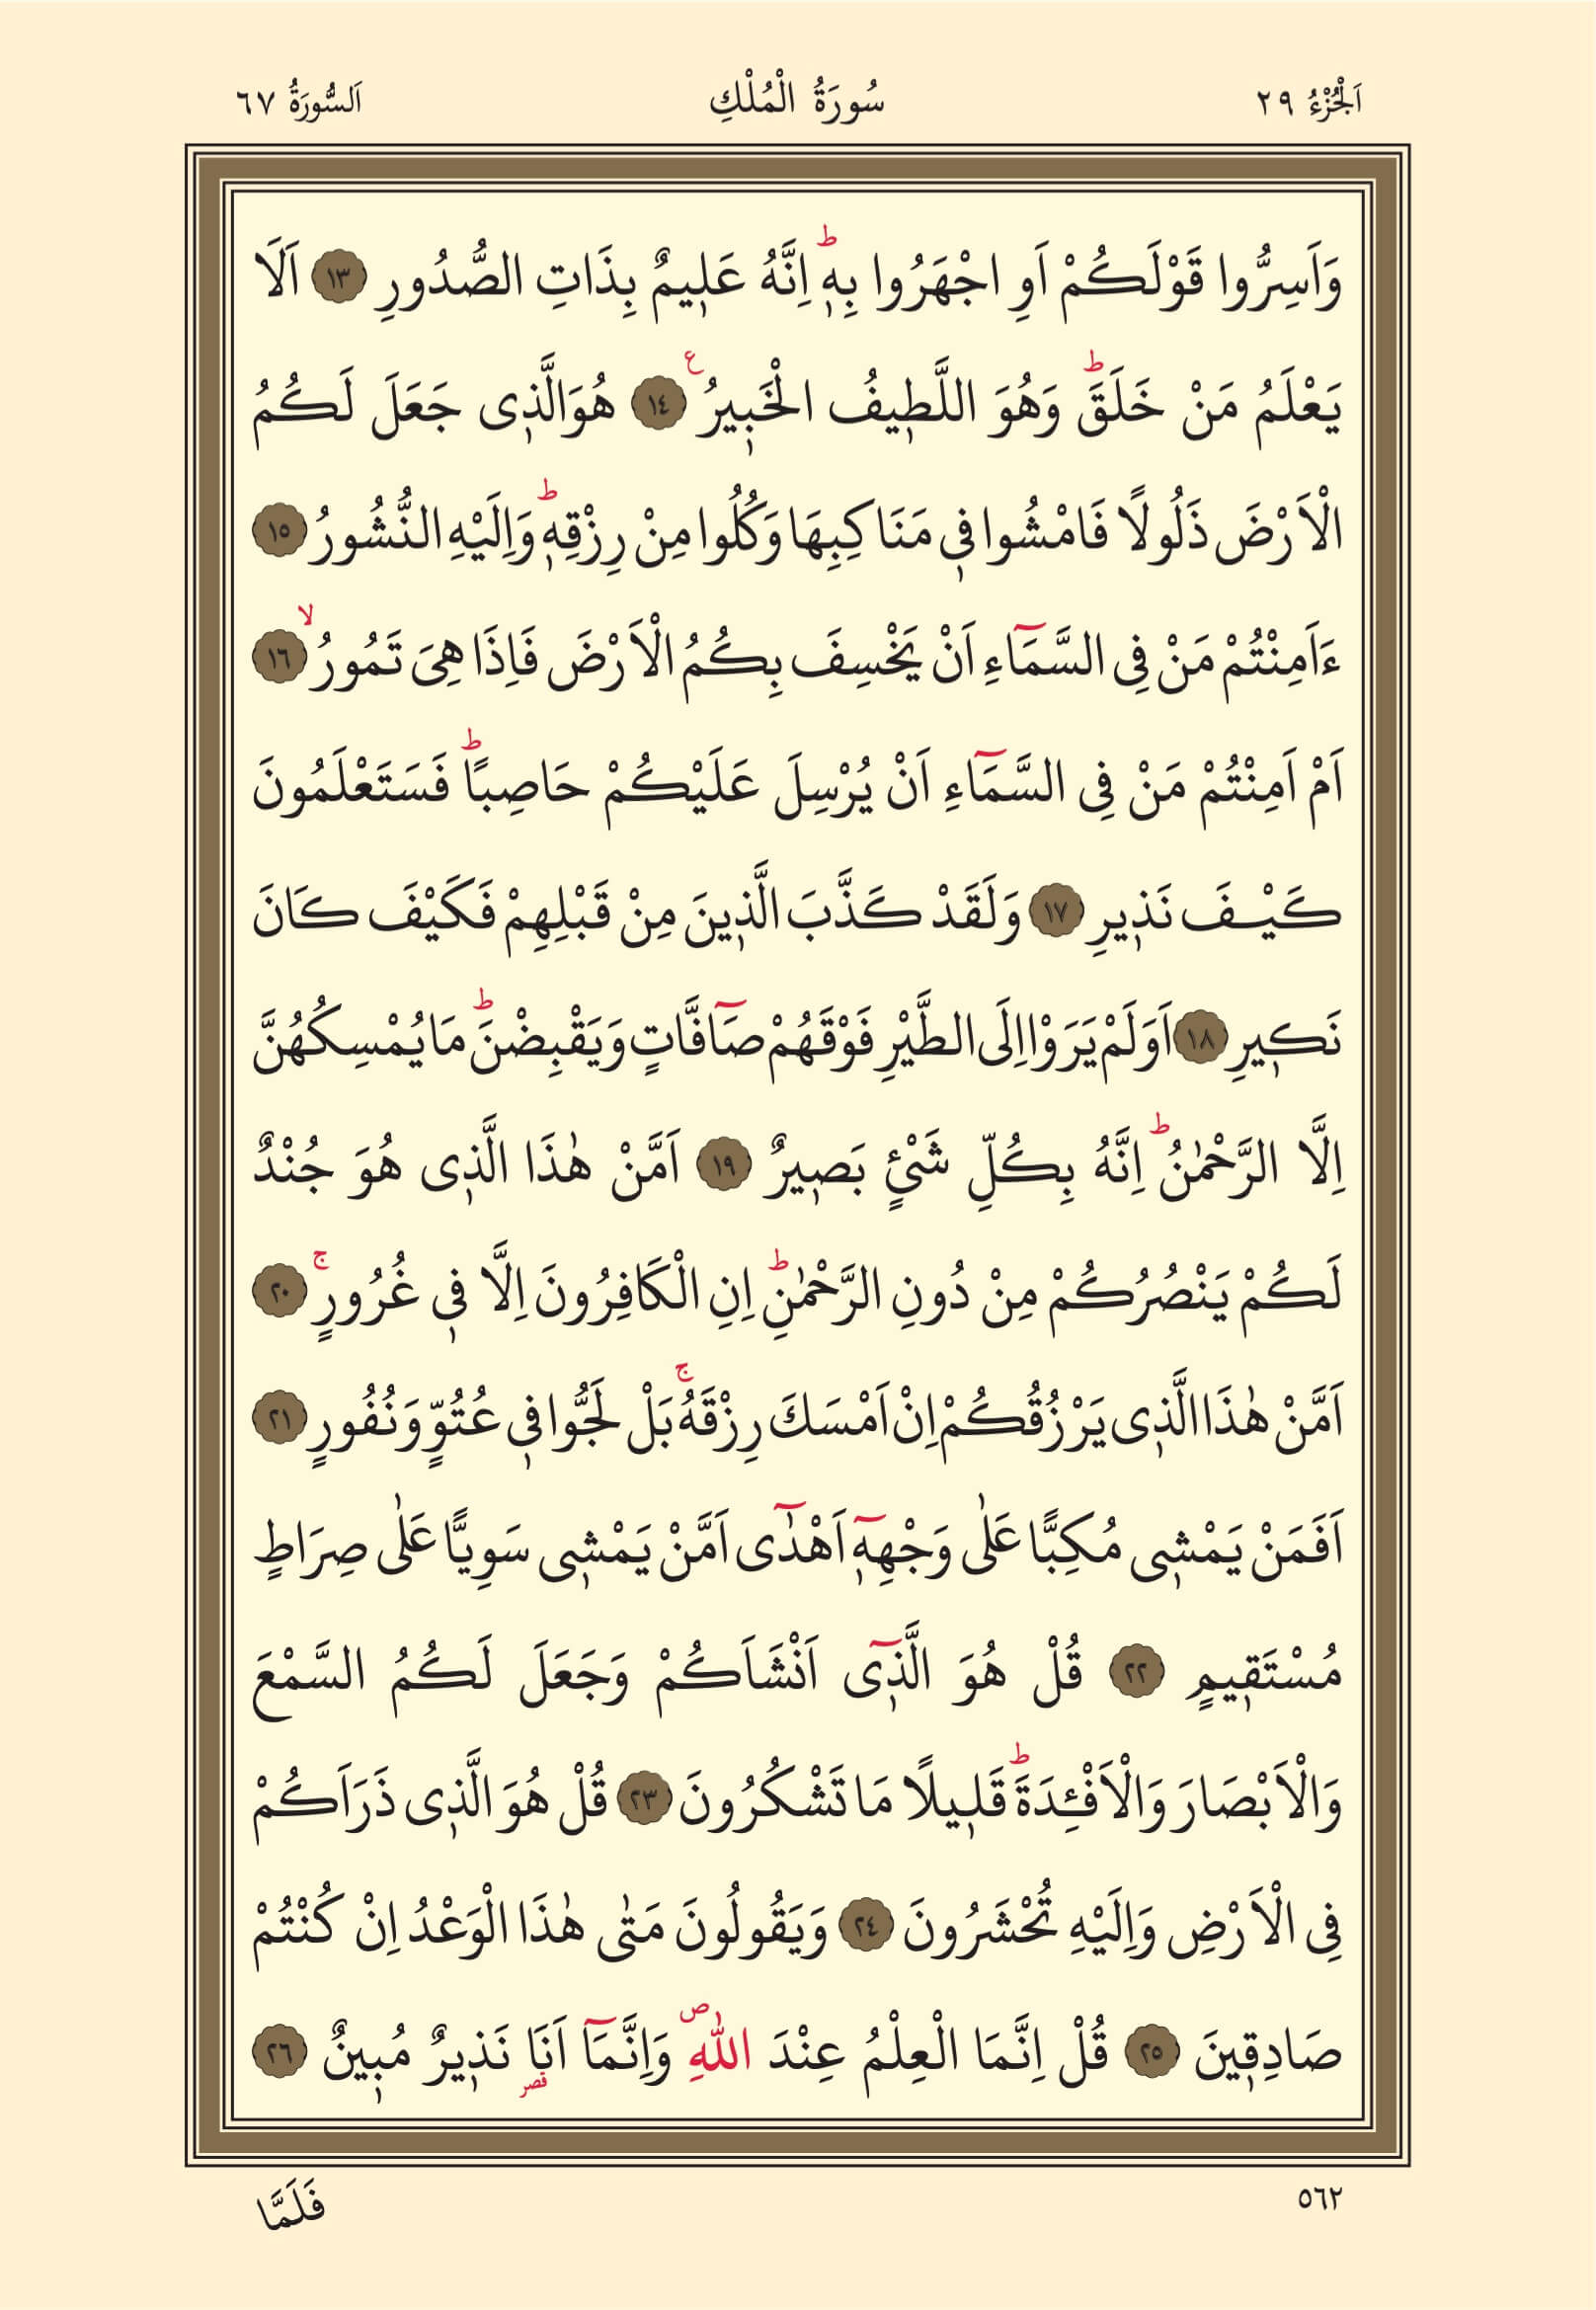 اَلْجُزْءُ ٢٩ سُورَةُ الْمُلْكِ اَلسُّورَةُ ٦٧
وَاَسِرُّوا قَوْلَكُمْ اَوِ اجْهَرُوا بِه۪ۜ اِنَّهُ عَل۪يمٌ بِذَاتِ الصُّدُورِ ١٣ اَلَا
يَعْلَمُ مَنْ خَلَقَۜ وَهُوَ اللَّط۪يفُ الْخَب۪يرُ ع ١٤ هُوَالَّذ۪ى جَعَلَ لَكُمُ
الْاَرْضَ ذَلُولًا فَامْشُوا ف۪ي مَنَاكِبِهَا وَكُلُوا مِنْ رِزْقِه۪ۜ وَاِلَيْهِ النُّشُورُ ١٥
ءَاَمِنْتُمْ مَنْ فِى السَّمَٓاءِ اَنْ يَخْسِفَ بِكُمُ الْاَرْضَ فَاِذَا هِىَ تَمُورُۙ ١٦
اَمْ اَمِنْتُمْ مَنْ فِى السَّمَٓاءِ اَنْ يُرْسِلَ عَلَيْكُمْ حَاصِبًاۜ فَسَتَعْلَمُونَ
كَيْفَ نَذ۪يرِ ١٧ وَلَقَدْ كَذَّبَ الَّذ۪ينَ مِنْ قَبْلِهِمْ فَكَيْفَ كَانَ
نَك۪يرِ ١٨ اَوَلَمْ يَرَوْا اِلَى الطَّيْرِ فَوْقَهُمْ صَٓافَّاتٍ وَيَقْبِضْنَۜ مَا يُمْسِكُهُنَّ
اِلَّا الرَّحْمٰنُۜ اِنَّهُ بِكُلِّ شَيْئٍ بَص۪يرٌ ١٩ اَمَّنْ هٰذَا الَّذ۪ى هُوَ جُنْدٌ
لَكُمْ يَنْصُرُكُمْ مِنْ دُونِ الرَّحْمٰنِۜ اِنِ الْكَافِرُونَ اِلَّا ف۪ي غُرُورٍۚ ٢٠
اَمَّنْ هٰذَا الَّذ۪ى يَرْزُقُكُمْ اِنْ اَمْسَكَ رِزْقَهُۚ بَلْ لَجُّوا ف۪ي عُتُوٍّ وَنُفُورٍ ٢١
اَفَمَنْ يَمْش۪ى مُكِبًّا عَلٰى وَجْهِه۪ٓ اَهْدٰٓى اَمَّنْ يَمْش۪ى سَوِيًّا عَلٰى صِرَاطٍ
مُسْتَق۪يمٍ ٢٢ قُلْ هُوَ الَّذ۪ٓى اَنْشَاَكُمْ وَجَعَلَ لَكُمُ السَّمْعَ
وَالْاَبْصَارَ وَالْاَفْـِٔدَةَۜ قَل۪يلًا مَا تَشْكُرُونَ ٢٣ قُلْ هُوَ الَّذ۪ى ذَرَاَكُمْ
فِى الْاَرْضِ وَاِلَيْهِ تُحْشَرُونَ ٢٤ وَيَقُولُونَ مَتٰى هٰذَا الْوَعْدُ اِنْ كُنْتُمْ
صَادِق۪ينَ ٢٥ قُلْ اِنَّمَا الْعِلْمُ عِنْدَ اللّٰهِۖ وَاِنَّمَٓا اَنَا۬ قصر نَذ۪يرٌ مُب۪ينٌ ٢٦
٥٦٢ فَلَمَّا